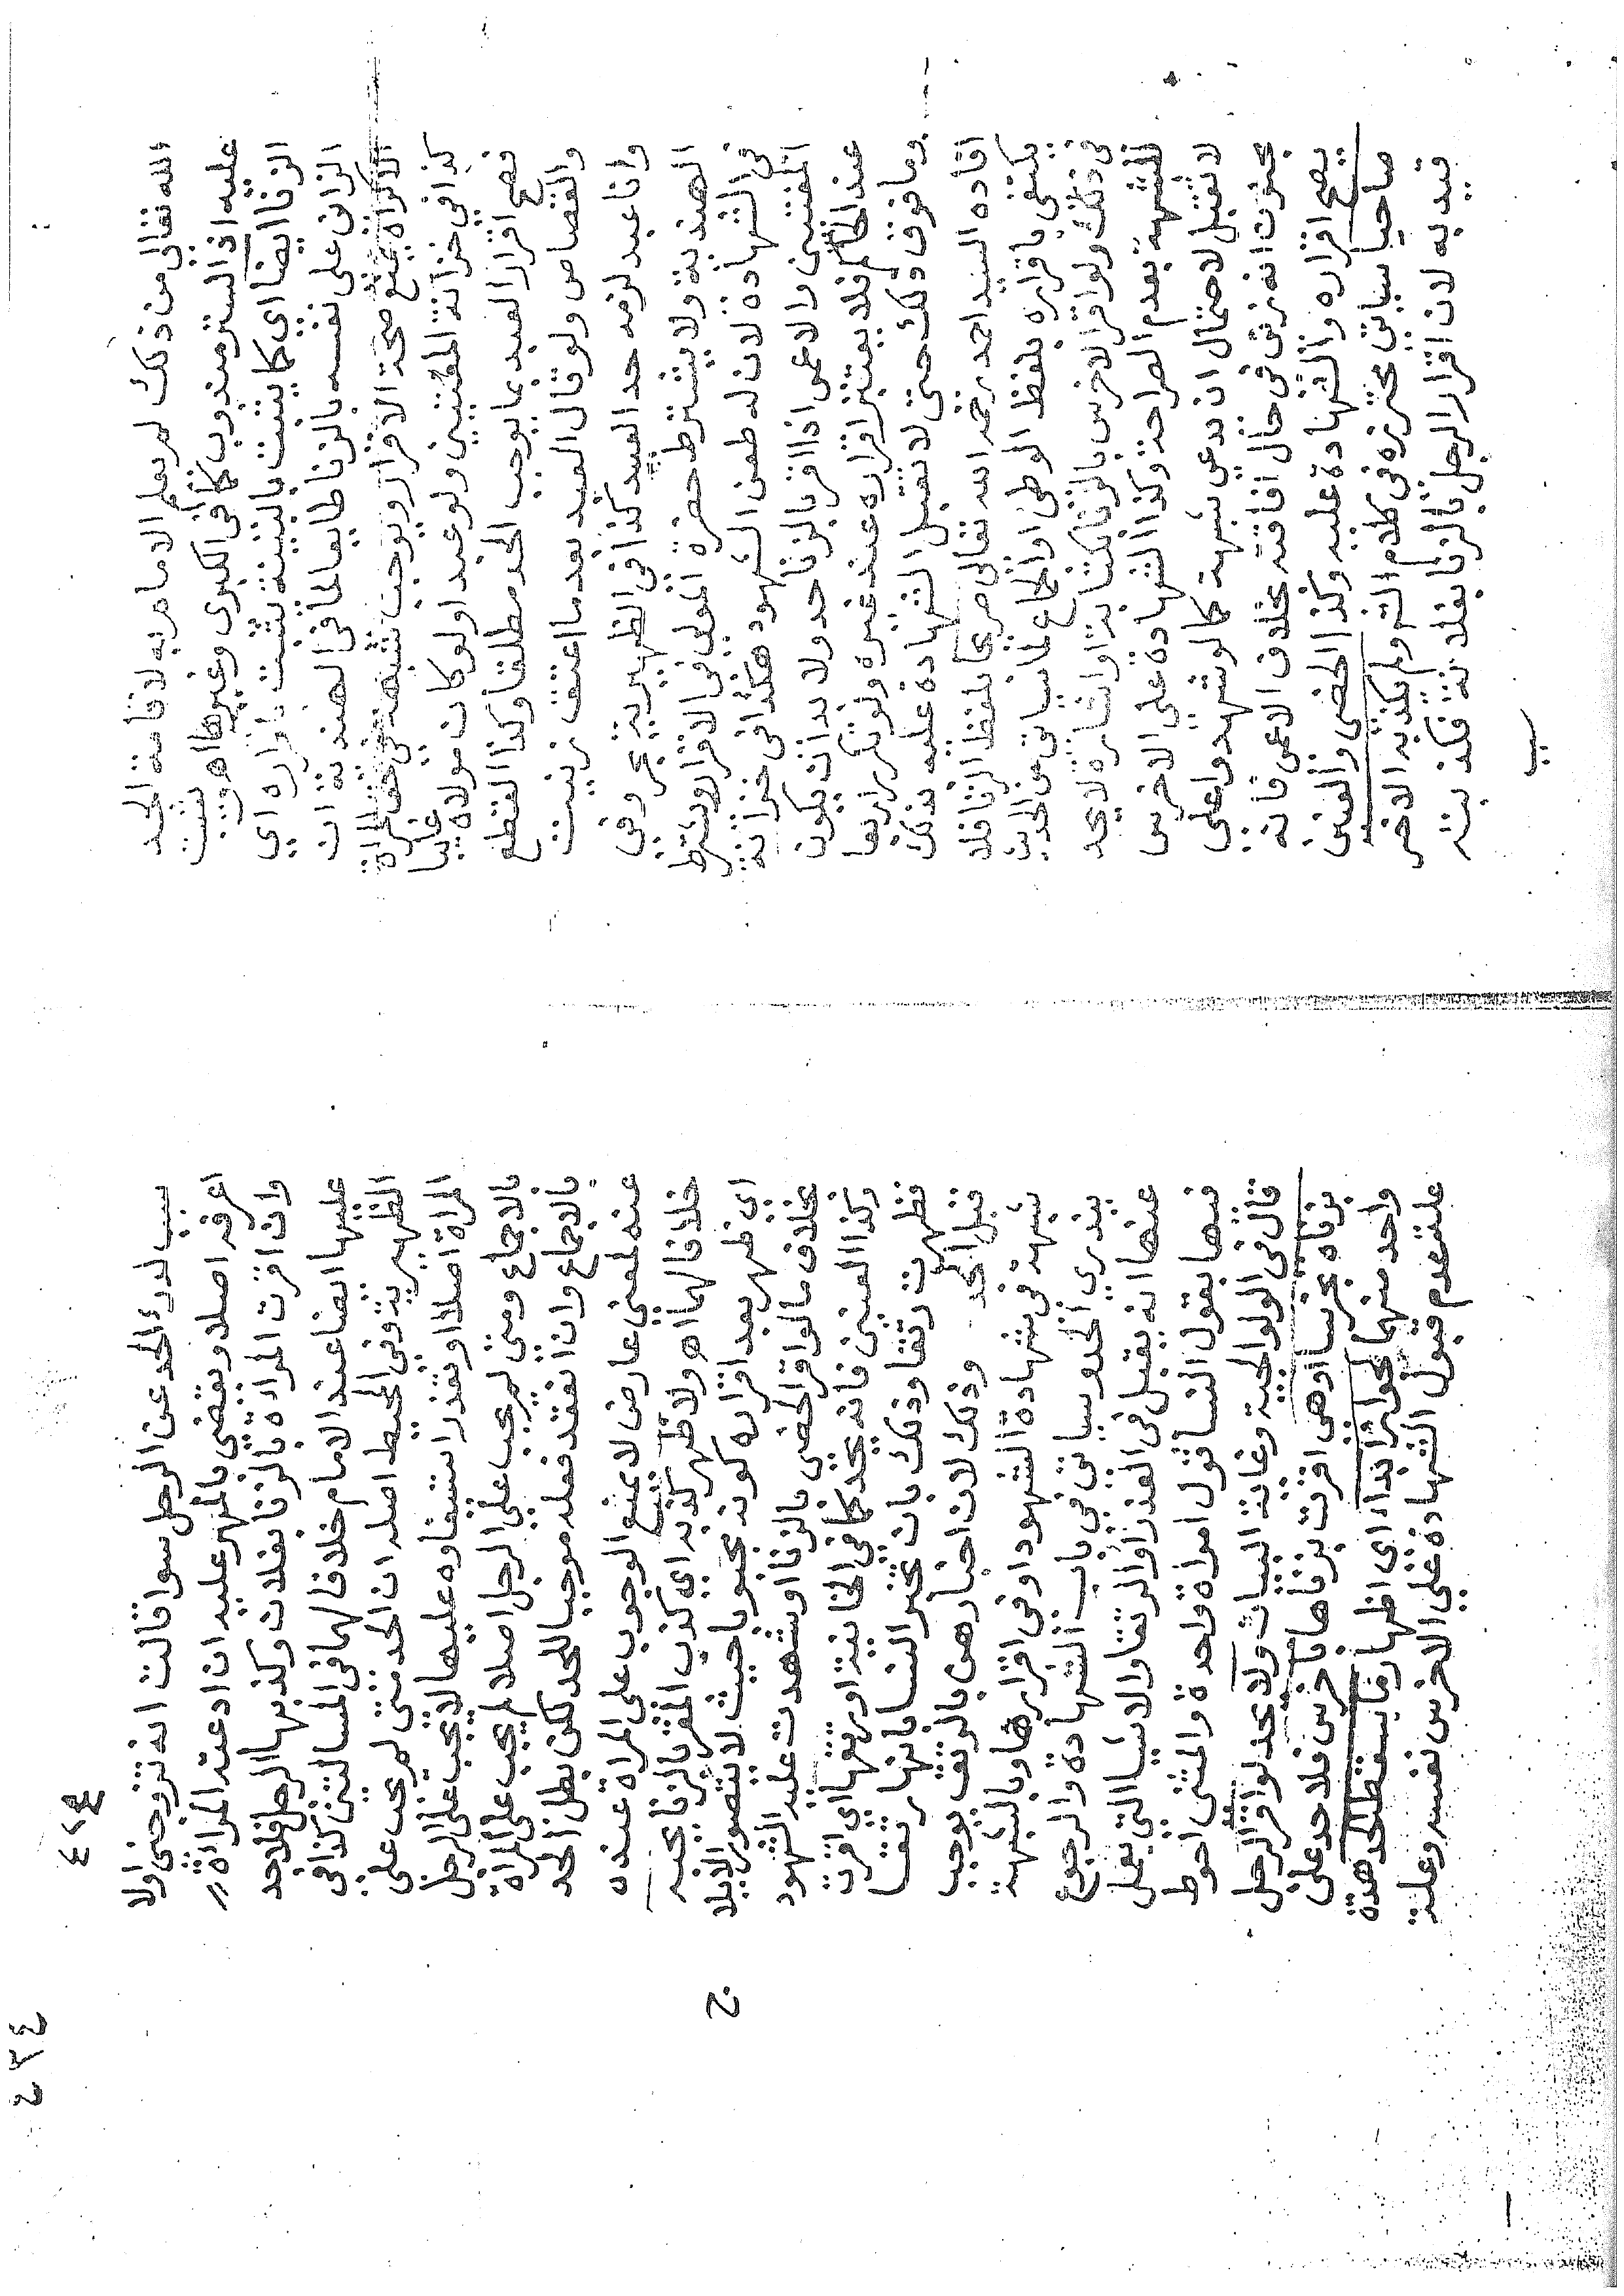 الله تعالى من ذلك لم يعلم الامام به لاقامة الحد
عليه اذ الستر مندوب كما في الكبرى وغيرها اه ويثبت
الزنا ايضا اي كما يثبت بالبينة يثبت باقراره اي
الزاني على نفسه بالزنا طايعا لما في الهندية ان
الاكراه يمنع صحة الاقرار ويوجب شبهة في حق المراة
كذا في خزانة المفتيين ولو عبدا ولو كان مولاه غايبا
فصح اقرار العبد بما يوجب الحد مطلقا وكذا القطع
والقصاص ولو قال العبد بعد ما اعتق زنيت
وانا عبد لزمه حد العبيد كذا في الظهيرية بحر وفي
الهندية ولا يشترط حضرة المولى في الاقرار ويشترط
في الشهادة لان له طعن الشهود هكذا في خزانة
المفتين والاعمى اذا اقر بالزنا حد ولا بد ان يكون
عند الحاكم فلا يعتبر اقراره عند غيره ولو تكرر اربعا
وما فوق ذلك حتى لا تقبل الشهادة عليه بذلك
افاده السيد احمد رحمه الله تعالى صريحا بلفظ الزنا فلا
يكتفى باقراره بلفظ الوطئ او الجماع لما سياتي من الحديث
في ذلك ولو اقر الاخرس بالزنا بكتابة او اشارة لا يحد
للشبهة بعدم الصراحة وكذا الشهادة على الاخرس
لا تقبل لاحتمال ان يدعي شبهة كما لو شهدوا على
مجنون انه زنى في حال افاقته بخلاف الاعمى فانه
يصح اقراره والشهادة عليه وكذا الخصي والعنين
صاحيا سياتي محترزه في كلام الشرح ولم يكذبه الاخر
قيد به لان اقرار الرجل بالزنا بفلانة فكذبته
سبب
٤٢٤
٤٣٤
سبب لدرئ الحد عن الرجل سوا قالت انه تزوجني اولا
اعرفه اصلا ويقضى بالمهر عليه ان ادعته المراة
وان اقرت المراة بالزنا بفلان وكذبها الرجل فلا حد
عليها ايضا عند الامام خلافا لهما في المسالتين كذا في
الظهيرية وفي المحيط اصله ان الحد متى لم يجب على
المراة اصلا او تعذر استيفاوه عليها لا يجب على الرجل
بالاجماع ومتى لم يجب على الرجل اصلا لم يجب على المراة
بالاجماع وان انعقد فعله موجبا للحد لكن بطل الحد
عنه لمعنى عارض لا يمنع الوجوب على المراة عنده
خلافا لهما اه ولا ظهر كذبه اي كذب المقر بالزنا بجبه
اي ظهر بعد اقراره كونه مجبوبا حيث لا يتصور الايلا
بخلاف ما لو اقر الخصي بالزنا او شهدت عليه الشهود
وكذا العنين فانه يحد كما في الخانية او رتقها اي اقرت
فظهرت رتقا وذلك بان تخبر النسا بانها رتقا
قبل الحد وذلك لان اخبارهن بالرتق يوجب
شبهة في شهادة الشهود او في اقرارها وبالشبهة
يندري الحد وسياتي في باب الشهادة والرجوع
عنها انه يقبل في العذرا والرتقا والاشيا التي يعمل
فيها بقول النسا قول امراة واحدة والمثنى احوط
قال في الولوالجية وغاية البيان ولا يحد لو اقر الرجل
بزناه بخرسا او هي اقرت بزناها باخرس فلا حد على
واحد منهما لجواز ابداء اي اظهار ما يسقط الحد هذه
علة عدم قبول الشهادة على الاخرس نفسه وعلة
ح